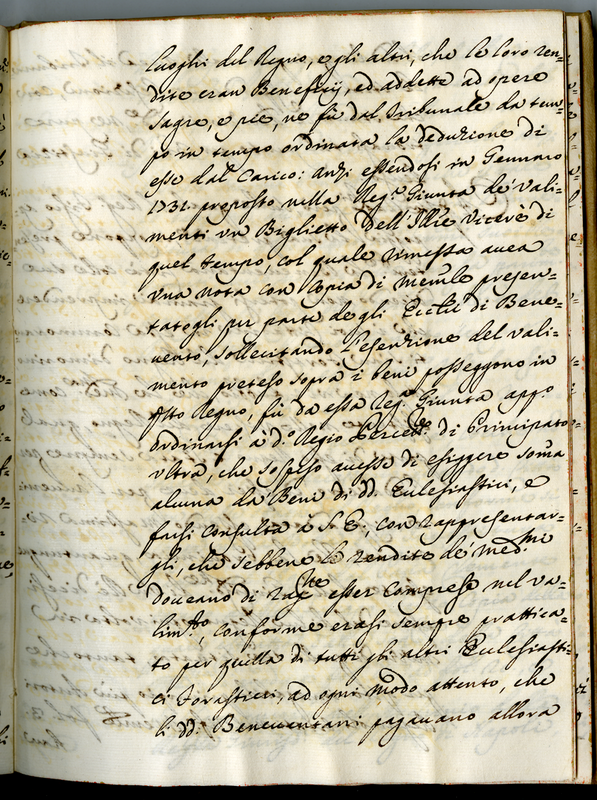 luoghi del Regno, e gli altri, che le loro ren=
dite eran Beneficij, ed addette ad opere
sagre, e pie, ne fù dal Tribunale da tem=
po in tempo ordinata la deduzione di
esse dal Carico: anzi essendosi in Gennaro
1732. proposto nella Reg.ª Giunta de' vali=
menti un Biglietto dell'Ill.e Vicerè di
quel tempo, col quale rimessa avea
una nota con copia di mem.le presen=
tatogli per parte degli Eccl.ci di Bene=
vento, sollecitando l'esenzione del vali=
mento preteso sopra i beni posseggono in
q.sto Regno, fù da essa Reg.ª Giunta app.o
ordinarsi a d.o Regio Percett.re di Principato
ultra, che sospeso avesse di esiggere som̃a
alcuna da Beni di dd. Eclesiastici, e
farsi consulta a S. E., con rappresentar=
gli, che sebbene le rendite de' med.mi
doveano di rag.ne esser comprese nel va=
lim.to, conforme erasi sempre prattica=
to per quella di tutti gli altri Eclesiasti=
ci forastieri, ad ogni modo attento, che
li dd. Beneventani pagavano allora